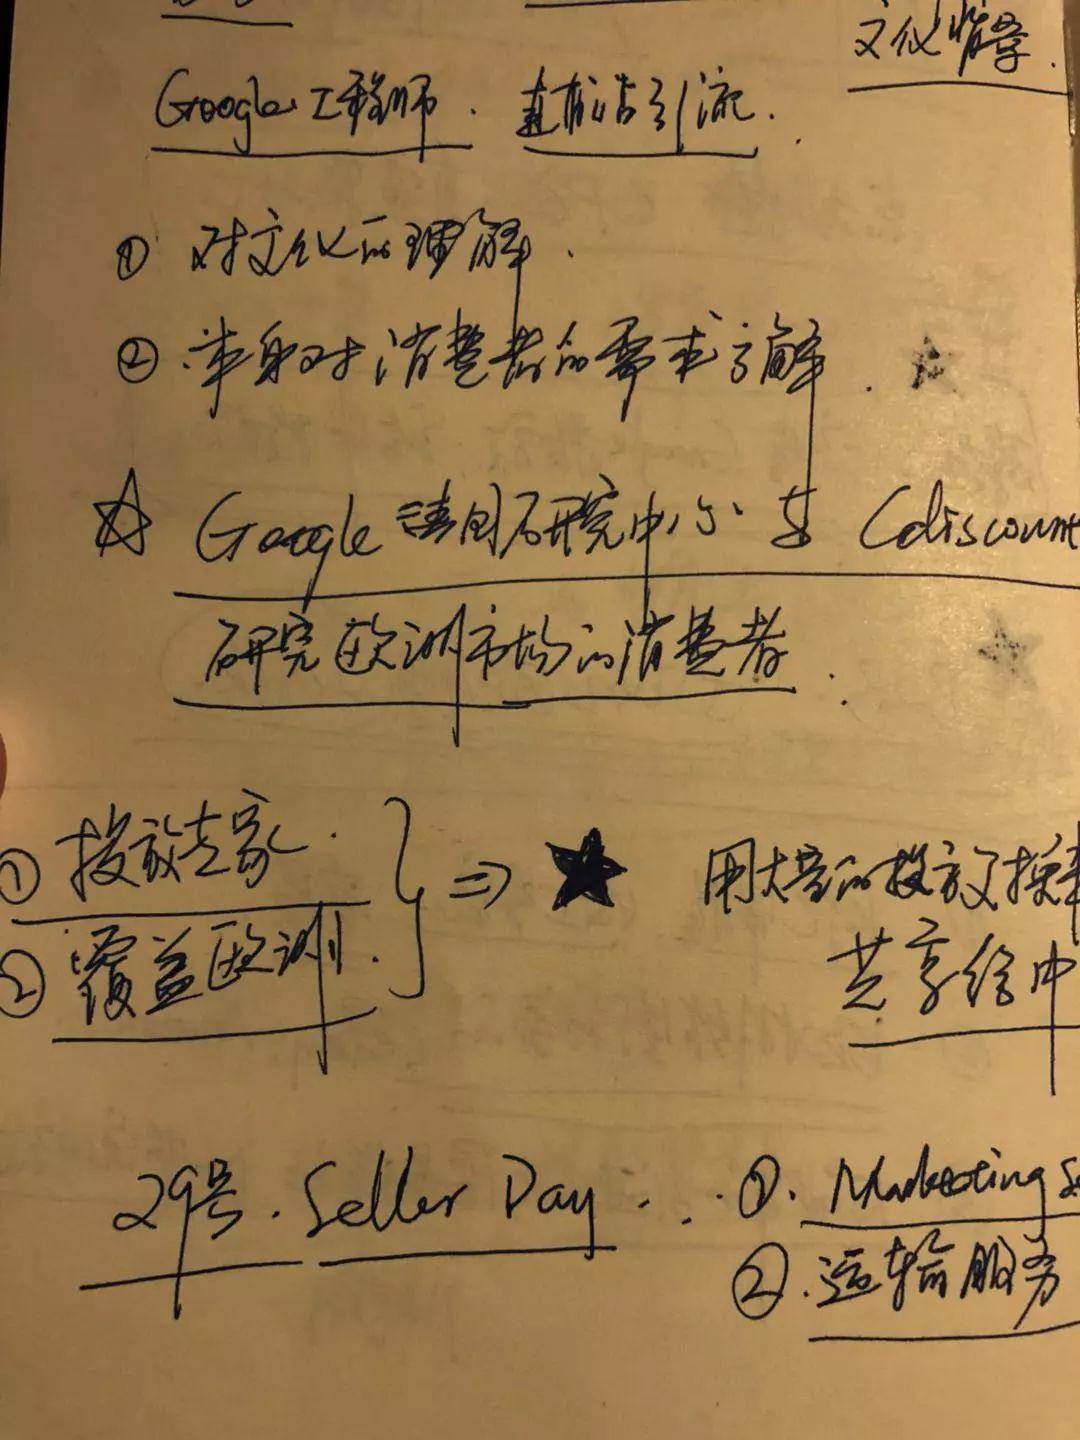 文化背景.
Google 工程师. 建格站引流.
① 对文化的理解.
② 本身对消费者的需求了解.
Google 法国研究中心与 Cdiscount
研究欧洲市场的消费者.
① 投放专家.
② 覆盖欧洲.
⇒ ★ 用大量的投放
共享给中
29号. Seller Day ...
①. Marketing Se
②. 运输服务